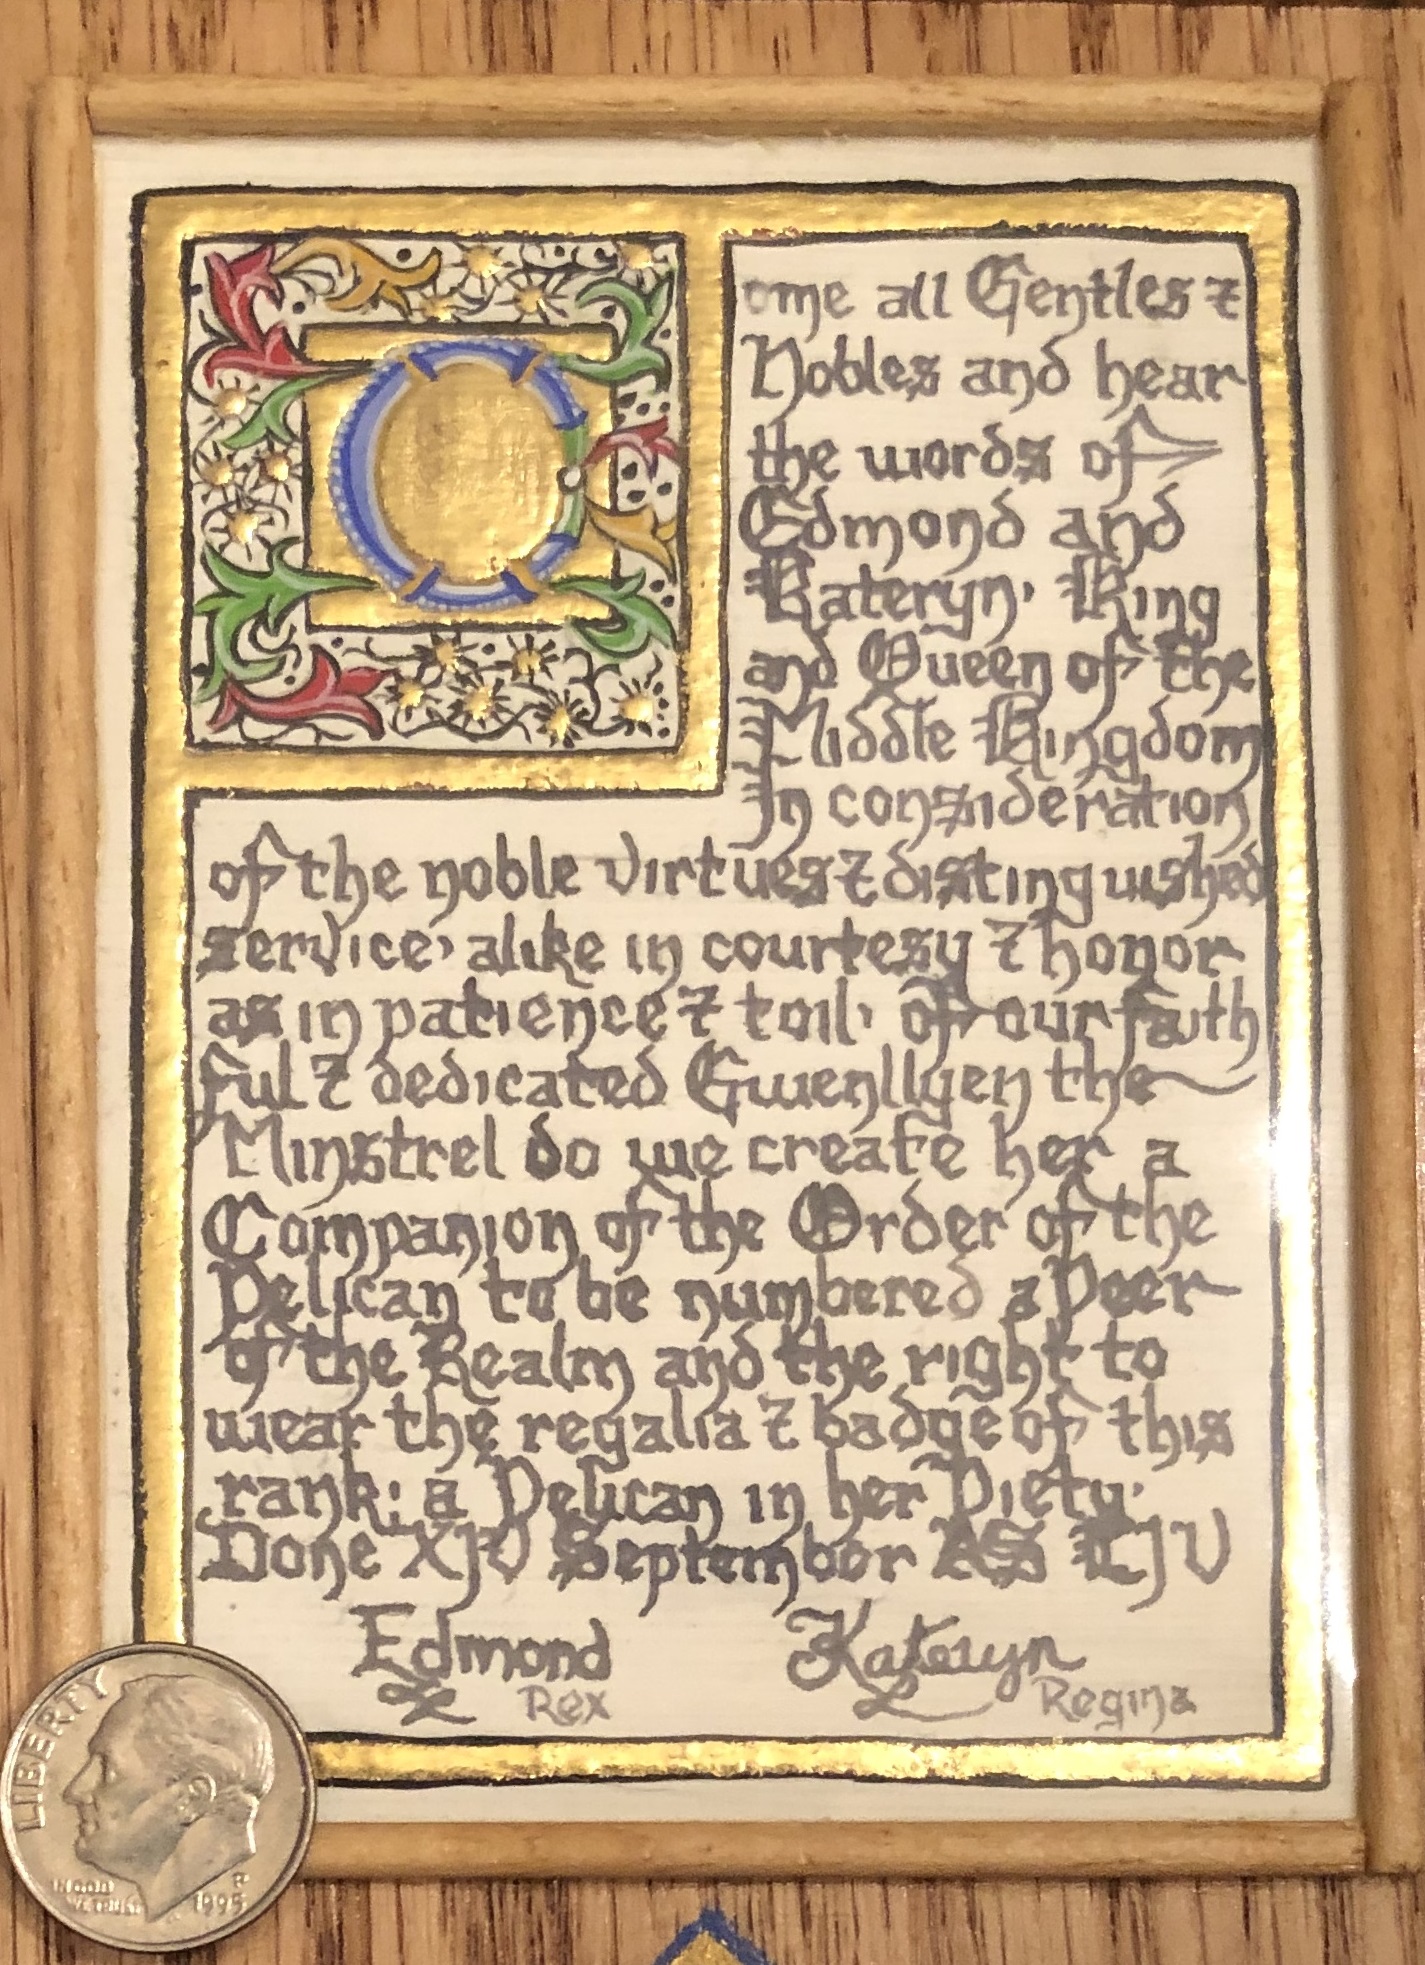 Come all Gentles ⁊
Nobles and hear
the words of
Edmond and
Kateryn, King
and Queen of the
Middle Kingdom
In consideration
of the noble virtues ⁊ distinguished
service, alike in courtesy ⁊ honor
as in patience ⁊ toil, of our faith
ful ⁊ dedicated Gwenllyen the
Minstrel do we create her a
Companion of the Order of the
Pelican to be numbered a Peer
of the Realm and the right to
wear the regalia ⁊ badge of this
rank: a Pelican in her Piety.
Done XIV September AS LIV
Edmond Kateryn
Rex Regina
LIBERTY
P
1995